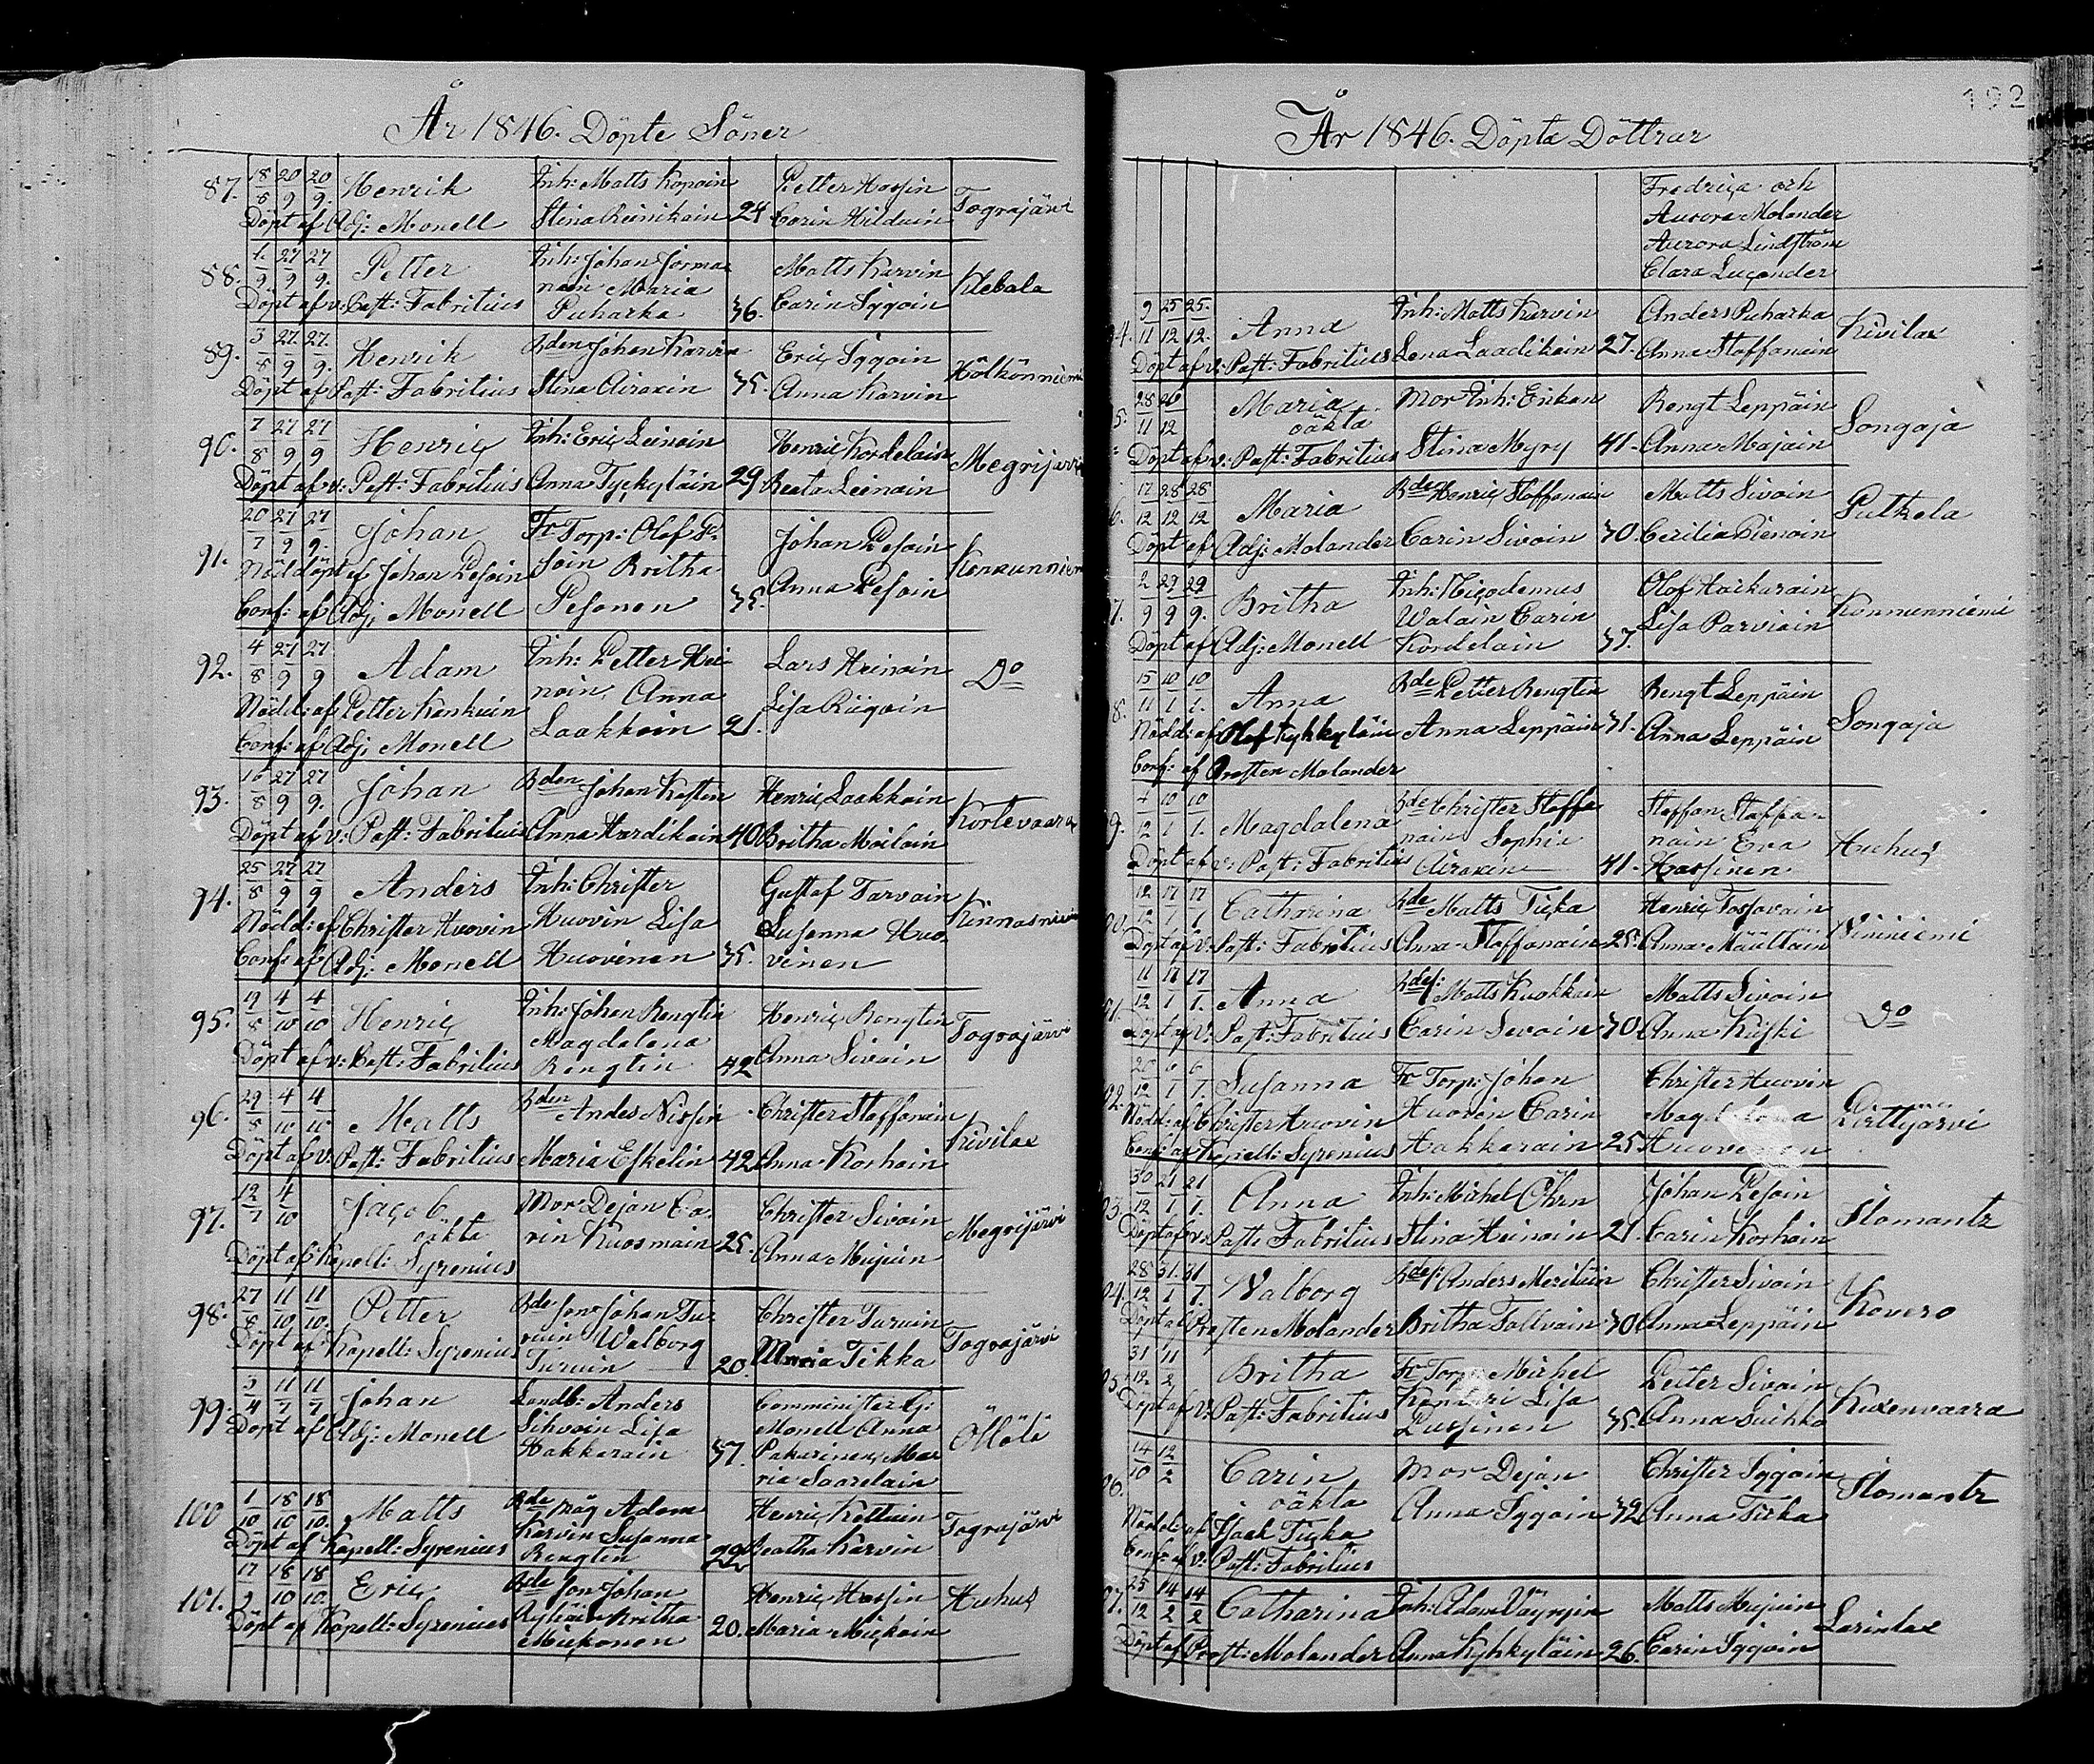 192
År 1846. Döpte Söner
87. 18/8 20/9 20/9. Henrik Inh: Matts Kopoin Petter Hassin Tograjärvi
Döpt af Adj: Monell Stina Reinikain 24 Carin Hilduin
88. 1/9 27/9 27/9. Petter Inh: Johan Jorma- Matts Karvin Klebala
nain Maria
Döpt af v: Past: Fabritius Puharka 36. Carin Iggoin
89. 3/8 27/9 27/9. Henrik Bden Johan Karvin Eric Iggoin Hölkönniemi
Döpt af Past: Fabritius Stina Airaxin 35. Anna Karvin
90. 7/8 27/9 27/9 Henric Inh: Eric Leinoin Henric Kordelain Megrijärvi
Döpt af v: Past: Fabritius Anna Tyckyläin 29 Beata Leinoin
91. 20/7 27/9 27/9. Johan Fr Torp: Olof Pe- Johan Pesoin Konnunniem
Nöddöpt af Johan Pesoin soin Britha Anna Pesoin
Conf: af Adj: Monell Pesonen 35.
92. 4/8 27/9 27/9 Adam Inh: Petter Hei- Lars Heinoin Do
noin, Anna
Nödd: af Petter Konkuin Laakkoin 21. Lisa Riigoin
Conf: af Adj: Monell
93. 16/8 27/9 27/9. Johan Bden Johan Kosten Henric Laakkoin Kortevaara
Döpt af v: Past: Fabritius Anna Hardikain 40 Britha Moilain
94. 25/8 27/9 27/9 Anders Inh: Christer Gustaf Tarvain Kinnasniemi
Nödd: af Christer Huovin Huovin Lisa Susanna Huo-
Conf: af Adj: Monell Huovinen 35. vinen
95. 19/8 4/10 4/10 Henric Inh: Johan Rengtin Henric Rengtin Tograjärvi
Magdalena
Döpt af v: Past: Fabritius Rengtin 42 Anna Sivoin
96. 29/8 4/10 4/10 Matts Bden Andes Nissin Christer Staffanain Kivilax
Döpt af v: Past: Fabritius Maria Eskelin 42 Anna Korhoin
97. 12/7 4/10 Jacob Mor Dejan Ca- Christer Sivoin Megrijärvi
oäkta rin Kuosmain 25. Anna Mujuin
Döpt af Kapell: Syrenius
98. 27/8 11/10 11/10. Petter Bde son Johan Tu- Christer Turuin Tograjärvi
ruin Walborg
Döpt af Kapell: Syrenius Turuin 20. Maria Tikka
99. 3/4 11/7 11/7 Johan Landb: Anders Comminister G: Ollola
Döpt af Adj: Monell Sihvoin Lisa Monell Anna
Hakkarain 37. Pakarinen, Ma-
ria Saarelain
100 1/10 18/10 18/10. Matts Bde måg Adam Henric Kettuin Tograjärvi
Döpt af Kapell: Syrenius Karvin Susanna Beatha Karvin
Rengten 22
101. 17/9 18/10 18/10. Eric Bde son Johan Henric Hassin Huhus
Döpt af Kapell: Syrenius Britha
Mickonen 20. Maria Mickoin
År 1846. Döpta Döttrar
Fredrica och
Aurora Molander
Aurora Lindström
Clara Lucander
4. 9/11 25/12 25/12. Anna Inh: Matts Karvin Anders Puharka Kivilax
Döpt af v: Past: Fabritius Lena Laadikain 27. Anna Staffanain
5. 28/11 26/12 Maria Mor Inh: Enkan Bengt Leppäin Songaja
oäkta
Döpt af v: Past: Fabritius Stina Myry 41. Anna Majain
6. 17/12 28/12 28/12 Maria Bden Henric Staffanain Matts Sivoin Putkela
Döpt af Adj: Molander Carin Sivoin 30. Cecilia Pienoin
7. 2/9 29/9 29/9. Britha Inh: Nicodemus Olof Haikarain Konnunniemi
Walain Carin Lisa Parviain
Döpt af Adj: Monell Kordelain 37.
8. 15/11 10/1 10/1. Anna Bde Petter Rengtin Bengt Leppäin Songaja
Nödd: af Olof Kyhkyläin Anna Leppäin 31. Anna Leppäin
Conf: af Prosten Molander
9. 4/12 10/1 10/1. Magdalena Bde Christer Staffa- Staffan Staffa- Huhus
nain Sophia nain Eva
Döpt af v: Past: Fabritius Airaxin 41. Hassinen
00. 12/12 17/1 17/1 Catharina Bde Matts Ticka Henric Tossavain Niiniemi
Döpt af v: Past: Fabritius Anna Staffanain 25. Anna Määttäin
01. 11/12 17/1 17/1. Anna Bdes: Matts Kuokkain Matts Sivoin Do
Döpt af v: Past: Fabritius Carin Sivoin 30. Anna Kuiski
02. 20/12 6/1 6/1. Susanna Fr Torp: Johan Christer Huovin Lirttijärvi
Nödd: af Christer Huovin Huovin Carin
Conf: af Kapell: Syrenius Hakkarain 25
03. 30/12 21/1 21/1. Anna Inh: Michel Öhrn Johan Pesoin Ilomantz
Döpt af v: Past: Fabritius Stina Heinoin 21. Carin Korhoin
04. 28/12 31/1 31/1. Walborg Bdes: Anders Meriläin Christer Sivoin Kovero
Döpt af Prosten Molander Britha Tallvain 30 Anna Leppäin
05. 31/12 11/2 Britha Fr Torp Michel Petter Sivoin Kuxenvaara
Döpt af v: Past: Fabritius Lisa
Pussinen 35. Anna Suihko
06. 14/10 12/2 Carin Mor Dejan Christer Iggoin Ilomantz
oäkta Anna Iggoin 32 Anna Ticka
Nödd: af Isak Ticka
Conf: af v: Past: Fabritius
07. 25/12 14/2 14/2 Catharina Inh: Adam Väyrjin Matts Mujuin Larinlax
Döpt af Prost: Molander Anna Kyhkyläin 26. Carin Iggoin